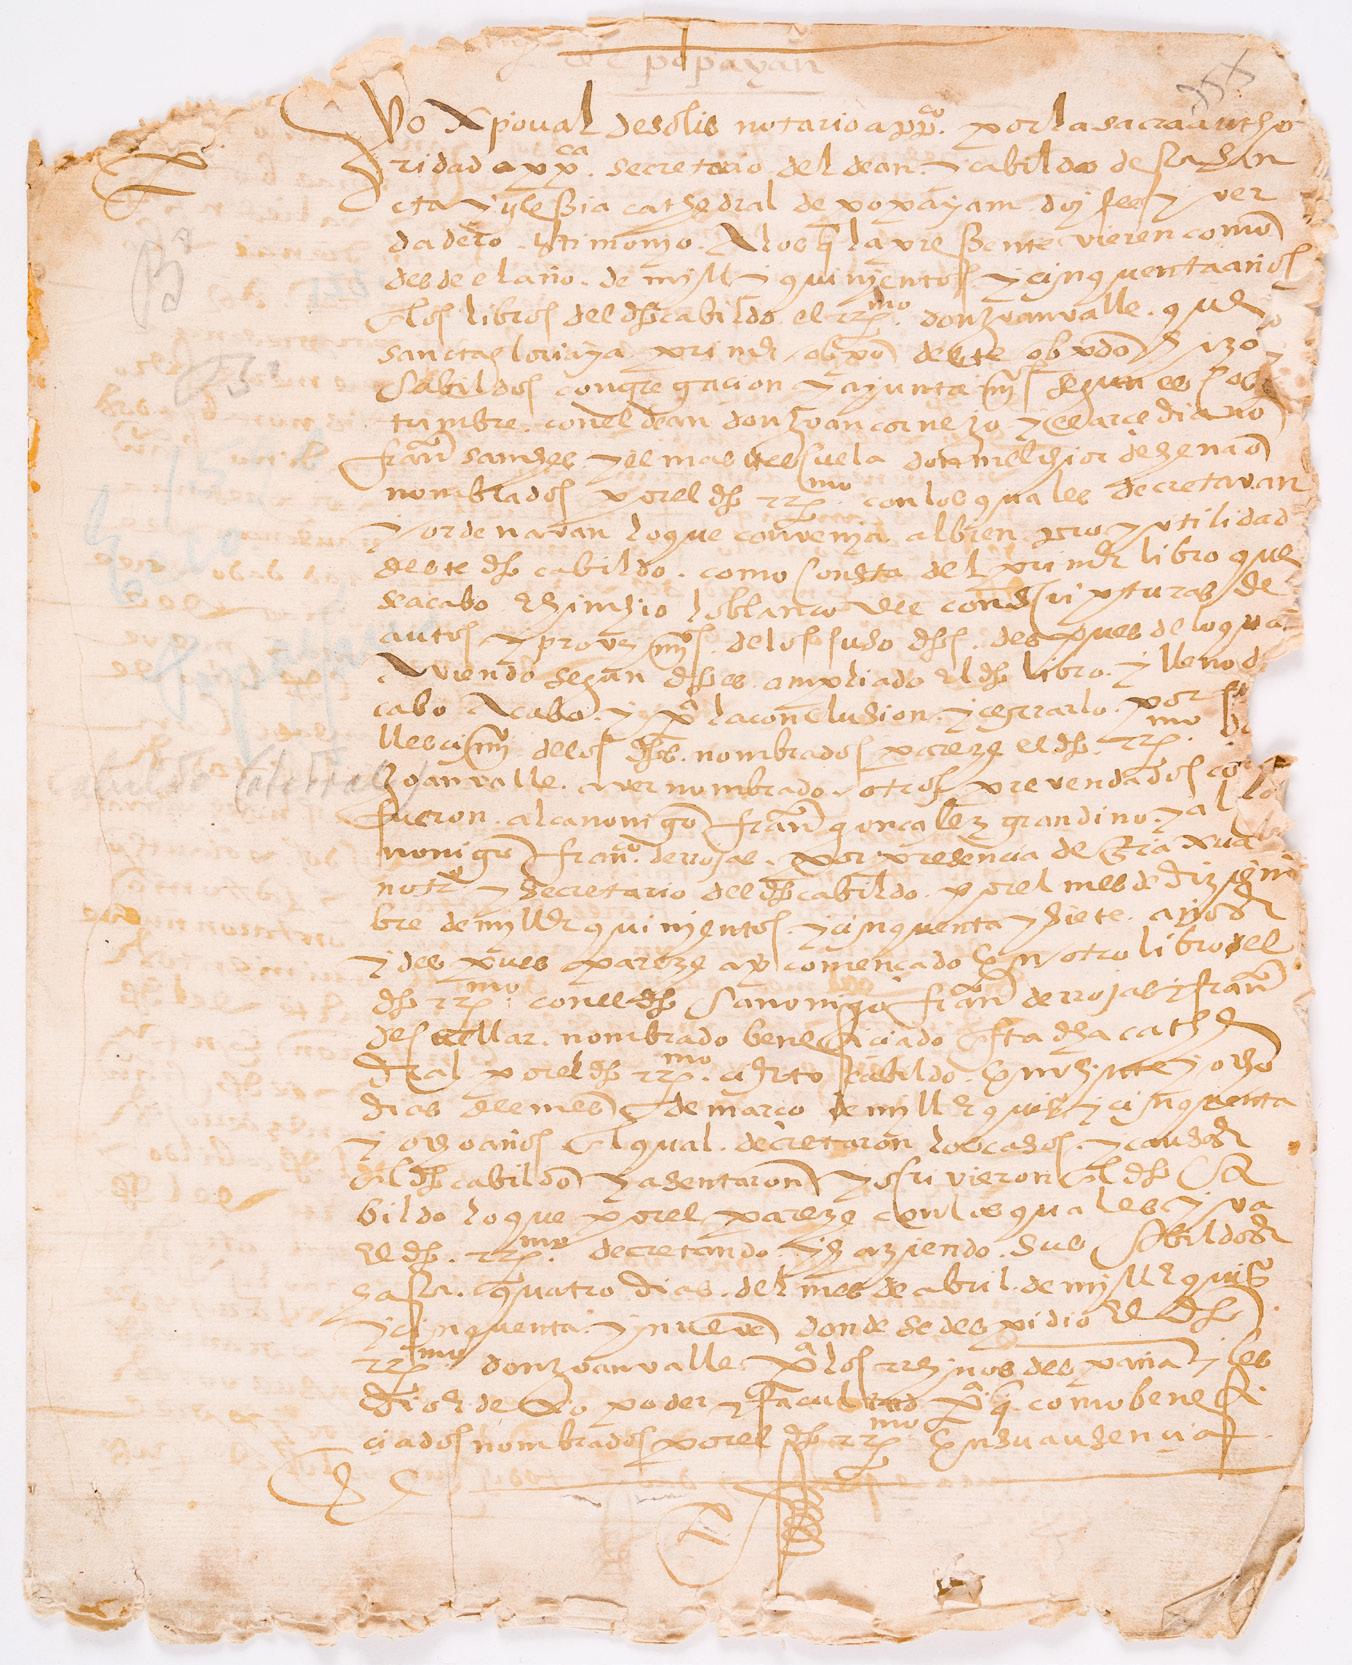 de popayan
Yo Xpoual de solis notario app.co por la sacra autho
ridad app.ca secretario del dean y cabildo desta san
cta yglesia cathedral de popayam doy fee y ver
dadero testimonyo A los q la pressente vieren como
desde el año de mjll y quinientos y cinquenta años
los libros del dho cabildo el rr.mo don Juan valle que
sancta gloria aya primer obpo deste obpdo hizo
Cabildos congregacion y ayuntamis segun es cos
tumbre con el dean don Juan cornejo y el arcediano
franco sanches y el mastrescuela don melchior de
nombrados por el dho rr.mo con los quales decretavan
y ordenavan lo que convenja al bien pro y utilidad
deste dho cabildo como consta del primer libro que
se acabo e hinchio lo blanco del con scripturas de
autos y proveimis de los suso dhos despues de lo qual
Aviendo segun dho es ampliado el dho libro y lleno de
cabo A cabo y pa la conclusion y cerrarlo por
llescimi de los dhos nombrados pareze el dho rr.mo
Joan valle aver nombrado otros prevendados
fueron al canonigo franco goncalez grandino y al
nonigo franco de rojas por presencia de
noto y secretario del dho cabildo por el mes de diziem
bre de mjll e quinientos y cinquenta y siete años
y despues pareze aver comencado en otro libro el
dho rr.mo con el dho Canonigo franco de rojas y franco
descullar nombrado beneficiado esta dha cathe
dral por el dho rr.mo cierto cabildo en veinte y ocho
dias del mes de março de mjll e quis y cinquenta
y ocho años El qual decretaron los casos y cousas
del dho cabildo y asentaron y escrivieron el dho Ca
bildo lo que por el pareze con los quales yva
el dho rr.mo decretando y haziendo sus Cabildos
hasta quatro dias del mes de abril de mjll e quis
y cinquenta y nueve donde se despidio el dho
rr.mo don Juan valle pa los rreynos despaña y les
dio e dexo poder y facultad pa q como benefi
ciados nombrados por el dho rr.mo en su ausencia
cabildo Catedral